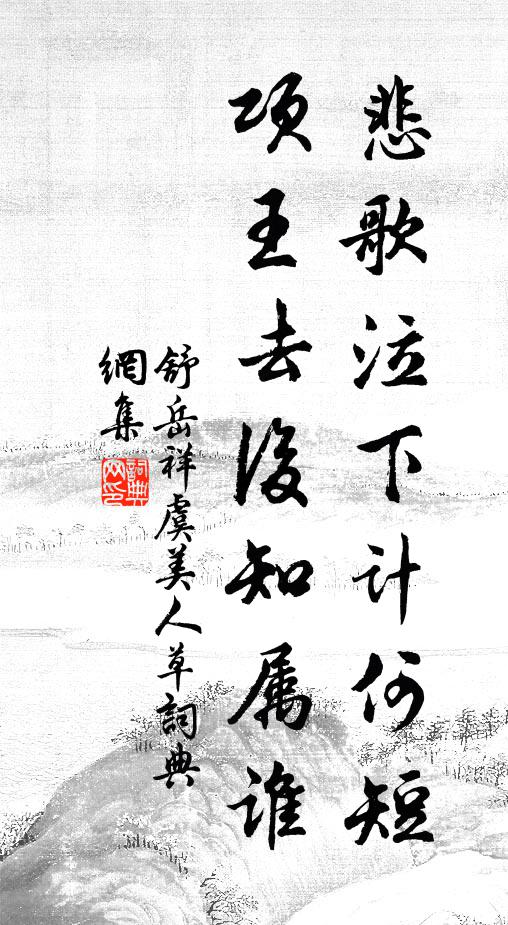 悲歌泣下计何短
项王去後知属谁
舒岳祥虞美人草詞典
網集
詞典網印